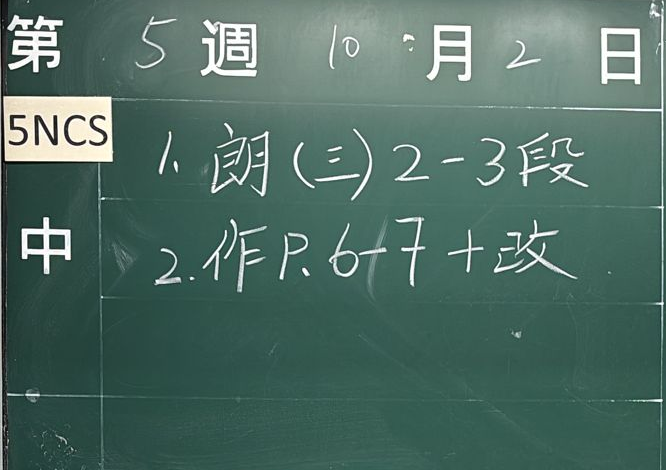 第 5 週 10 月 2 日
5NCS
1. 朗(三)2-3段
中
2. 作P.6-7+改